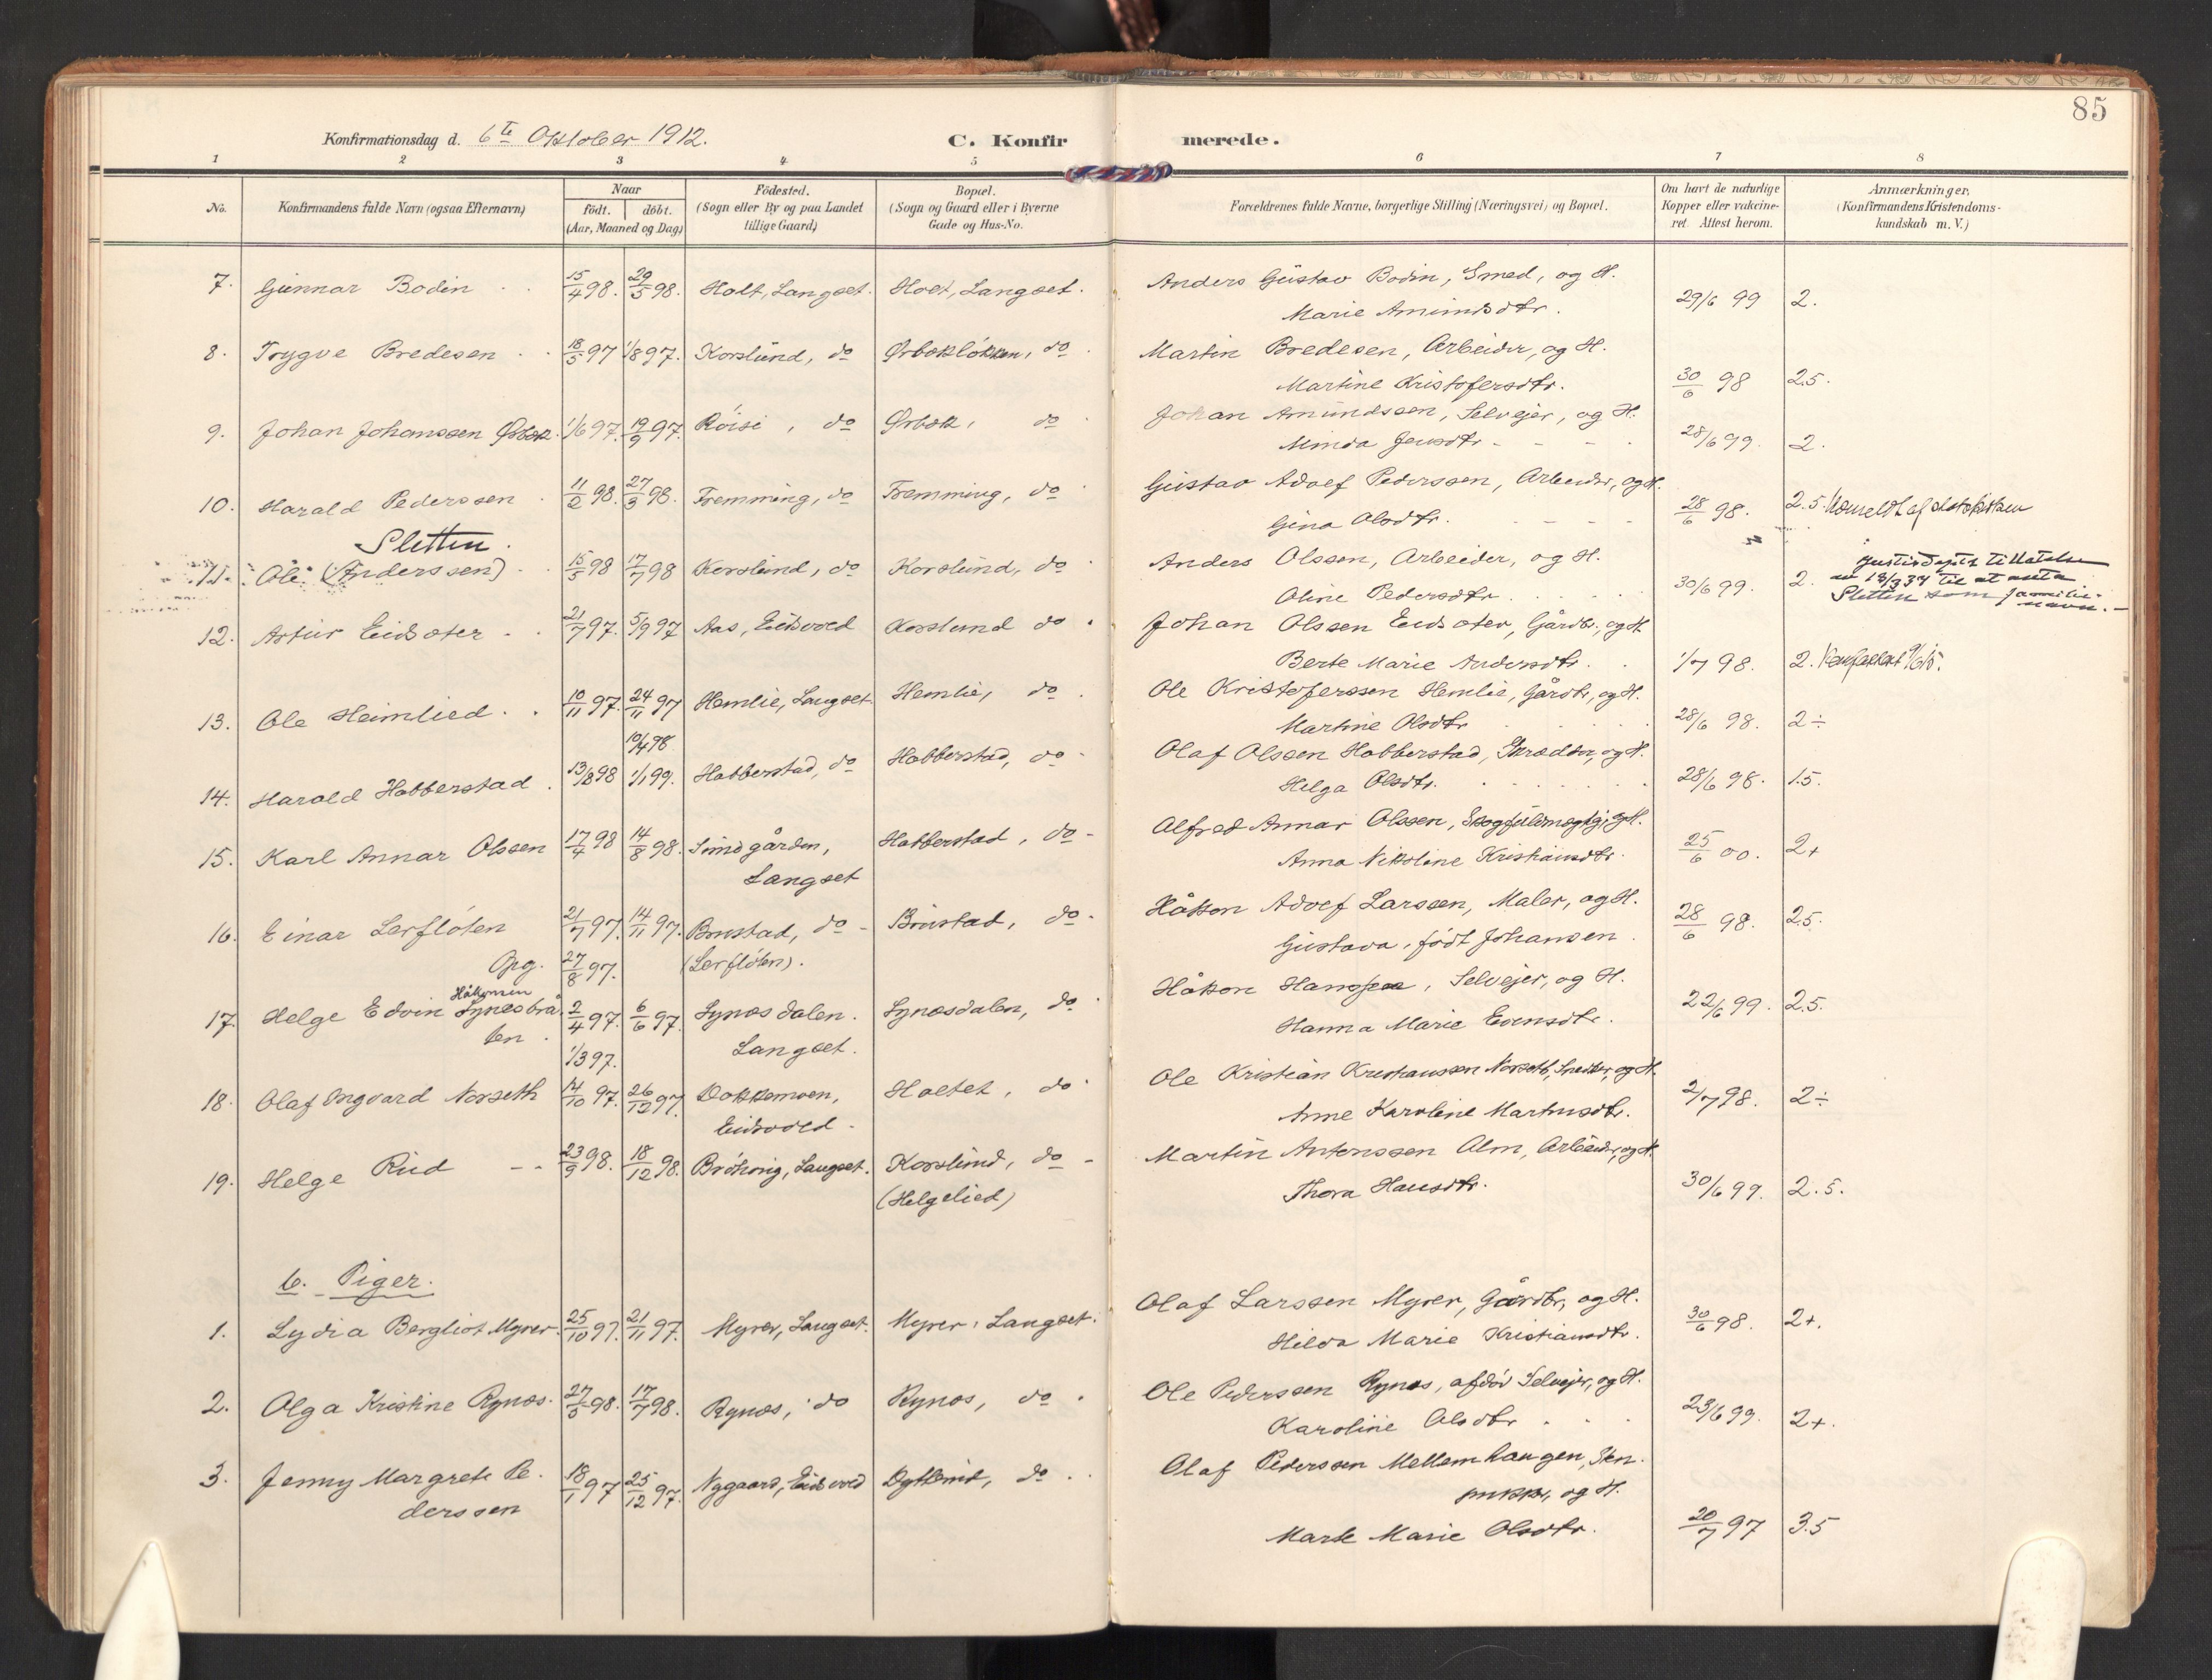 85
Konfirmationsdag d. 6te Oktober 1912. C. Konfirmerede.
1 2 3 4 5 6 7 8
No.
Konfirmandens fulde Navn (ogsaa Efternavn)
Naar
födt. döbt.
(Aar, Maaned og Dag)
Födested.
(Sogn eller By og paa Landet
tillige Gaard)
Bopæl.
(Sogn og Gaard eller i Byerne
Gade og Hus-No.
Forældrenes fulde Navne, borgerlige Stilling (Næringsvei) og Bopæl.
Om havt de naturlige
Kopper eller vakcine-
ret. Attest herom.
Anmærkninger.
(Konfirmandens Kristendoms-
kundskab m. V.)
7. Gunnar Bodin 15/4 98. 29/5 98. Holt, Langset. Holt, Langset. Anders Gustav Bodin, Smed, og H.
Marie Amundsdtr. 29/6 99 2.
8. Trygve Bredesen 18/5 97 1/8 97. Korslund, do Ørbækløkken, do Martin Bredesen, Arbeider, og H.
Martine Kristofersdtr. 30/6 98 2.5.
9. Johan Johanssen Ørbæk. 1/6 97. 19/9 97. Röise, do Ørbæk, do Johan Amundssen, Selvejer, og H.
Minda Jensdtr. 28/6 99. 2.
10. Harald Pederssen 11/2 98. 27/3 98. Fremming, do Fremming, do Gustav Adolf Pederssen, Arbeider, og H.
Gina Olsdtr. 28/6 98. 2.5. Utmeldt af statskirken
Sletten.
11. Ole (Anderssen) 15/5 98 17/7 98 Korslund, do Korslund, do Anders Olssen, Arbeider, og H.
Oline Pedersdtr. 30/6 99. 2. Justisdepts tillatelse
av 18/3 34 til at anta
Sletten som familie-
navn.
12. Artur Eidsoter 21/7 97. 5/9 97 Aas, Eidsvold Korslund do Johan Olssen Eidsoter, Gårdbr., og H.
Berte Marie Andersdtr. 1/7 98. 2.
13. Ole Heimlied 10/11 97. 24/11 97 Hemlie, Langset Hemlie, do Ole Kristoferssen Hemlie, Gårdbr, og H.
Martine Olsdtr 28/6 98. 2÷
10/4 98.
14. Harald Habberstad 13/8 98 1/1 99. Habberstad, do Habberstad, do Olaf Olssen Habberstad, Skrædder, og H.
Helga Olsdtr. 28/6 98. 1.5.
15. Karl Annar Olssen 17/4 98 14/8 98. Sundgården,
Langset
Habberstad, do Alfred Annar Olssen, Skogfuldmægtig, og H.
Anna Nikoline Kristiansdtr. 25/6 00. 2+
16. Einar Lerflöten 21/7 97. 14/11 97. Brustad, do Brustad, do Håkon Adolf Larssen, Maler, og H.
Opg. 27/8 97. (Lerflöten).
Gustava, födt Johansen 28/6 98. 2.5.
Håkonsen
17. Helge Edvin Synesbrå
ten 2/4 97. 6/6 97. Synæsdalen.
Langset.
Synæsdalen, do Håkon Hanssen, Selvejer, og H.
Hanna Marie Evensdtr. 22/6 99. 2.5.
1/3 97.
18. Olaf Ingvard Norseth 14/10 97. 26/12 97. Dokkemoen,
Eidsvold
Holtet, do Ole Kristian Kristianssen Norseth, Snedker, og H.
Anne Karoline Martinsdtr. 2/7 98. 2÷
19. Helge Rud 23/9 98. 18/12 98. Bröhaug, Langset. Korslund, do
(Helgelied)
Martin Antonssen Alm, Arbeider, og H.
Thora Hansdtr. 30/6 99. 2.5.
b. Piger.
1. Lydia Bergliot Myrer 25/10 97. 21/11 97. Myrer, Langset. Myrer, Langset. Olaf Larssen Myrer, Gårdbr, og H.
Hilda Marie Kristiansdtr. 30/6 98. 2+.
2. Olga Kristine Rynæs. 27/5 98. 17/7 98. Rynæs, do Rynæs, do Ole Pederssen Rynæs, afdød Selvejer, og H.
Karoline Olsdtr 23/6 99. 2+.
3. Jenny Margrete Pe-
derssen 18/1 97 25/12 97. Nygaard, Eidsvold Dytterud, do Olaf Pederssen Mellemhaugen, Sten-
pukker, og H.
Marte Marie Olsdtr. 20/7 97 3.5